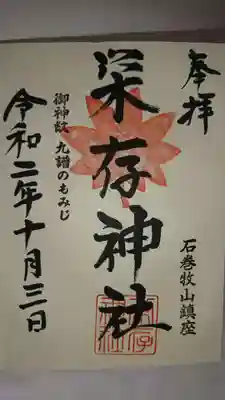 奉拝
石巻牧山鎮座
栄存神社
御神紋 九譜のもみじ
令和二年十月三日